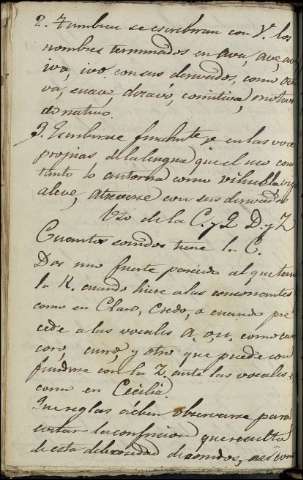 2. Tambien se escribiran con V. los
nombres terminados en ava, ave, avo
iva, ivo, con sus derivados, como
octavo, comitiva,
donativo.
3. Escribirse finalmente, en las voces
propias de la lengua que el uso cons
tante lo autoriza como vihuela,
aleve, atreverse con sus derivados
Uso de la C. y Q D. y Z
Cuantos sonidos tiene la C.
Dos uno fuerte parecido al que tiene
la K. cuando hiere a las consonantes
como en Claro, Credo, o cuando pre
cede a las vocales a. o. u. como
coro, curro, y otro que puede con
fundirse con la Z. ante las vocales
como en Cecilia.
Que reglas deben observarse para
evitar la confusion que resulta
de esta diversidad de sonidos,